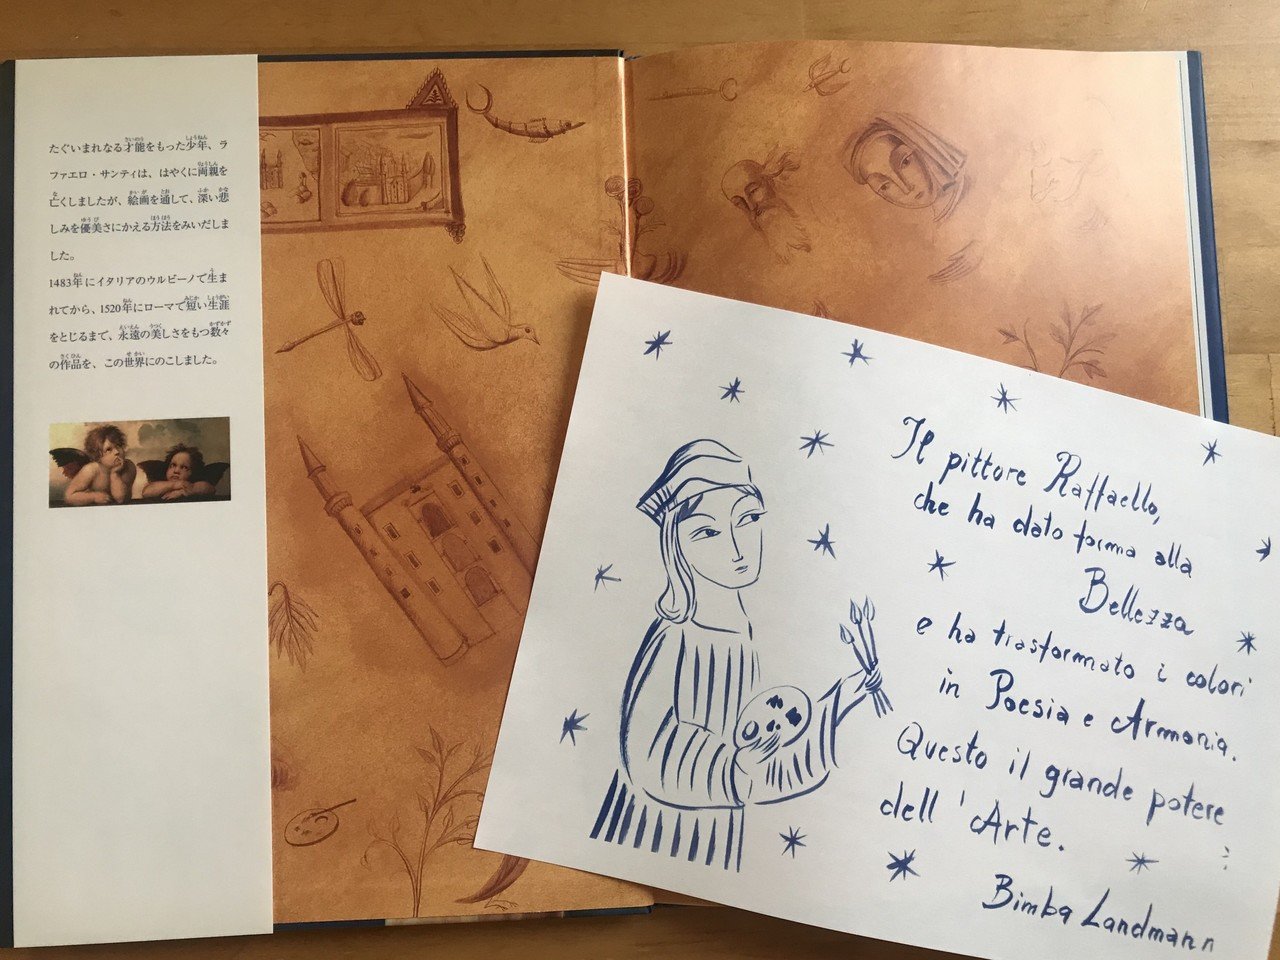 たぐいまれなる才能をもった少年、ラ
ファエロ・サンティは、はやくに両親を
亡くしましたが、絵画を通して、深い悲
しみを優美さにかえる方法をみいだしま
した。
1483年にイタリアのウルビーノで生ま
れてから、1520年にローマで短い生涯
をとじるまで、永遠の美しさをもつ数々
の作品を、この世界にのこしました。
Il pittore Raffaello,
che ha dato forma alla
Bellezza
e ha trasformato i colori
in Poesia e Armonia.
Questo il grande potere
dell'Arte.
Bimba Landmann